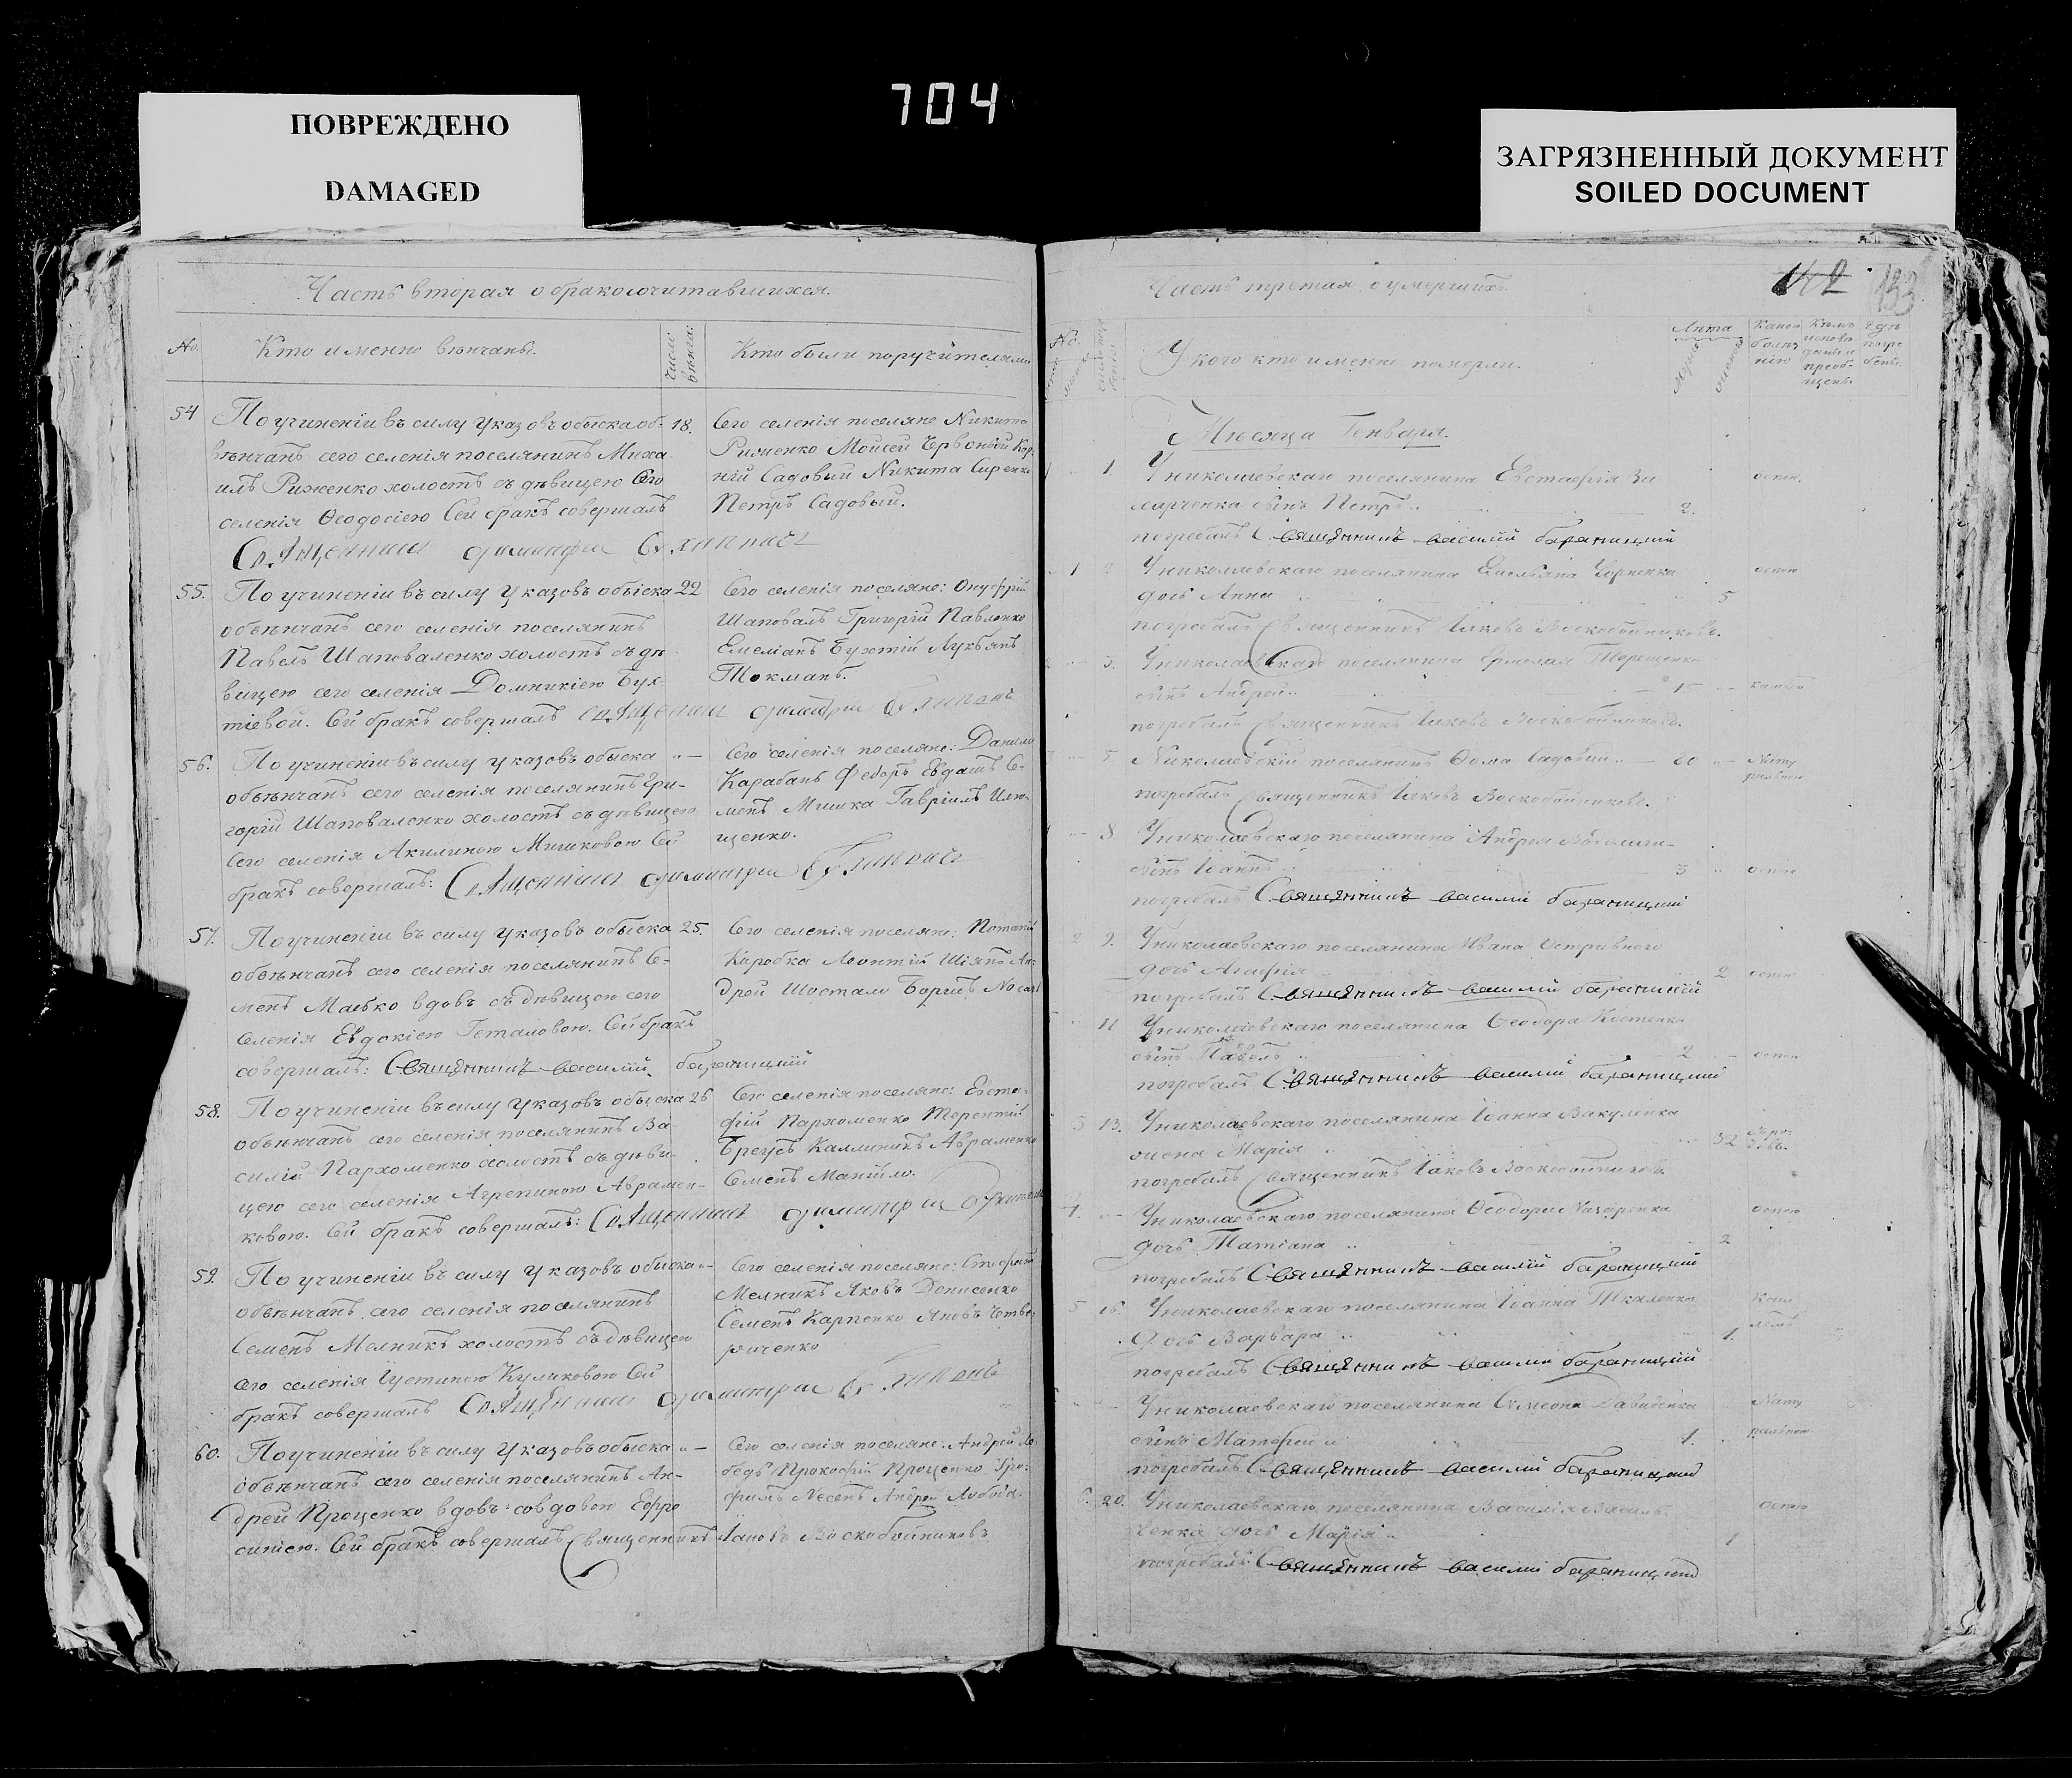 704
ПОВРЕЖДЕНО
DAMAGED
ЗАГРЯЗНЕННЫЙ ДОКУМЕНТ
SOILED DOCUMENT
Часть вторая о бракосочитавшихся.
No.
Кто именно вѣнчаны.
Кто были поручителями
54
По учиненіи въ силу указовъ обыска об-
18.
вѣнчанъ сего селенія поселянинъ Миха-
илъ Риженко холостъ съ дѣвицею Сего
селенія Ѳеодосіею Сей бракъ совершалъ
Сего селенія поселяне Никита
Риженко Мойсей Червоный Кор-
ній Садовый Никита Сиренко
Петръ Садовый.
55.
По учиненіи въ силу указовъ обыска
22
обвѣнчанъ сего селенія поселянинъ
Павелъ Шаповаленко холостъ съ дѣ-
вицею сего селенія Домникіею Бух-
тіевой. Сей бракъ совершалъ
Сего селенія поселяне: Онуфрій
Шаповалъ Григорій Павленко
Емеліанъ Бухтій Лукьянъ
Токманъ.
56.
По учиненіи въ силу указовъ обыска
" —
обвѣнчанъ сего селенія поселянинъ Гри-
горій Шаповаленко холостъ съ дѣвицею
Сего селенія Акилиною Мишковою Сей
бракъ совершалъ:
Сего селенія поселяне: Данило
Карабанъ Федоръ Евдашъ Се-
менъ Мишка Гавріилъ
щенко.
57.
По учиненіи въ силу указовъ обыска
25.
обвѣнчанъ сего селенія поселянинъ Се-
менъ Маебко вдовъ съ дѣвицею сего
Селенія Евдокіею Геталовою. Сей бракъ
совершалъ: Священникъ василій бараницкій
Сего селенія поселяне: Потапій
Коробка Леонтій Шіянъ Ан-
дрей Шостало Борисъ
58.
По учиненіи въ силу указовъ обыска
26
обвѣнчанъ сего селенія поселянинъ Ва-
силій Пархоменко холостъ съ дѣви-
цею сего селенія Агрепиною Авramен-
ковою. Сей бракъ совершалъ:
Сего селенія поселяне: Евста-
фій Пархоменко Терентій
Брегусъ Каллиникъ Авраменко
Семенъ Манѣйло.
59.
По учиненіи въ силу указовъ обыска
обвѣнчанъ сего селенія поселянинъ
Семенъ Мелникъ холостъ съ дѣвицею
сего селенія Іустиною Куликовою Сей
бракъ совершалъ
Сего селенія поселяне: Стефанъ
Мелникъ Яковъ Денисенко
Семенъ Карпенко Яковъ Четве-
риченко
60.
По учиненіи въ силу указовъ обыска
" —
обвѣнчанъ сего селенія поселянинъ Ан-
дрей Проценко вдовъ: со вдовою Ефро
синіею. Сей бракъ совершалъ Священникъ Іаковъ Воскобойниковъ
Сего селенія поселяне: Андрей Ле-
бедь Прокофій Проценко Тро-
фимъ Андрей Лобода
Часть третая о умершихъ.
142
153
No.
У кого кто именно померли.
Лѣта
Мѣсяца Генваря.
1
У николаевскаго поселянина Евстафія За
харченка сынъ Петръ
2.
погребалъ Священникъ василій бараницкій
У николаевскаго поселянина Емельяна Чорненка
дочь Анна
5
погребалъ Священникъ Іаковъ Воскобойниковъ.
3.
У николаевскаго поселянина Ермолая Терещенка
сынъ Андрей
15
погребалъ Священникъ Іаковъ Воскобойниковъ.
5
Николаевскій поселянинъ Ѳома Садовый
60
Нату
рально
погребалъ Священникъ Іаковъ Воскобойниковъ.
8
У николаевскаго поселянина Андрея
сынъ Іоаннъ
3
погребалъ Священникъ василій бараницкій
9.
У николаевскаго поселянина Ивана Остривного
дочь Агафія
2
погребалъ Священникъ василій бараницкій
11
У николаевскаго поселянина Ѳеодора Костенка
сынъ Павелъ
2
погребалъ Священникъ василій бараницкій
13.
У николаевскаго поселянина Іоанна Вакуленка
жена Марія
32
погребалъ Священникъ Іаковъ Воскобойниковъ
У николаевскаго поселянина Ѳеодора Назаренка
дочь Татіана
2
погребалъ Священникъ василій бараницкій
16.
У николаевскаго поселянина Іоанна Ткаленка
Дочь Варвара
1.
погребалъ Священникъ василій бараницкій
У николаевскаго поселянина Симеона Давиденка
Нату
сынъ Матфей
1.
рально
погребалъ Священникъ василій бараницкій
20.
У николаевскаго поселянина Василія Василь-
ченка дочь Марія
1
погребалъ Священникъ василій бараницкій